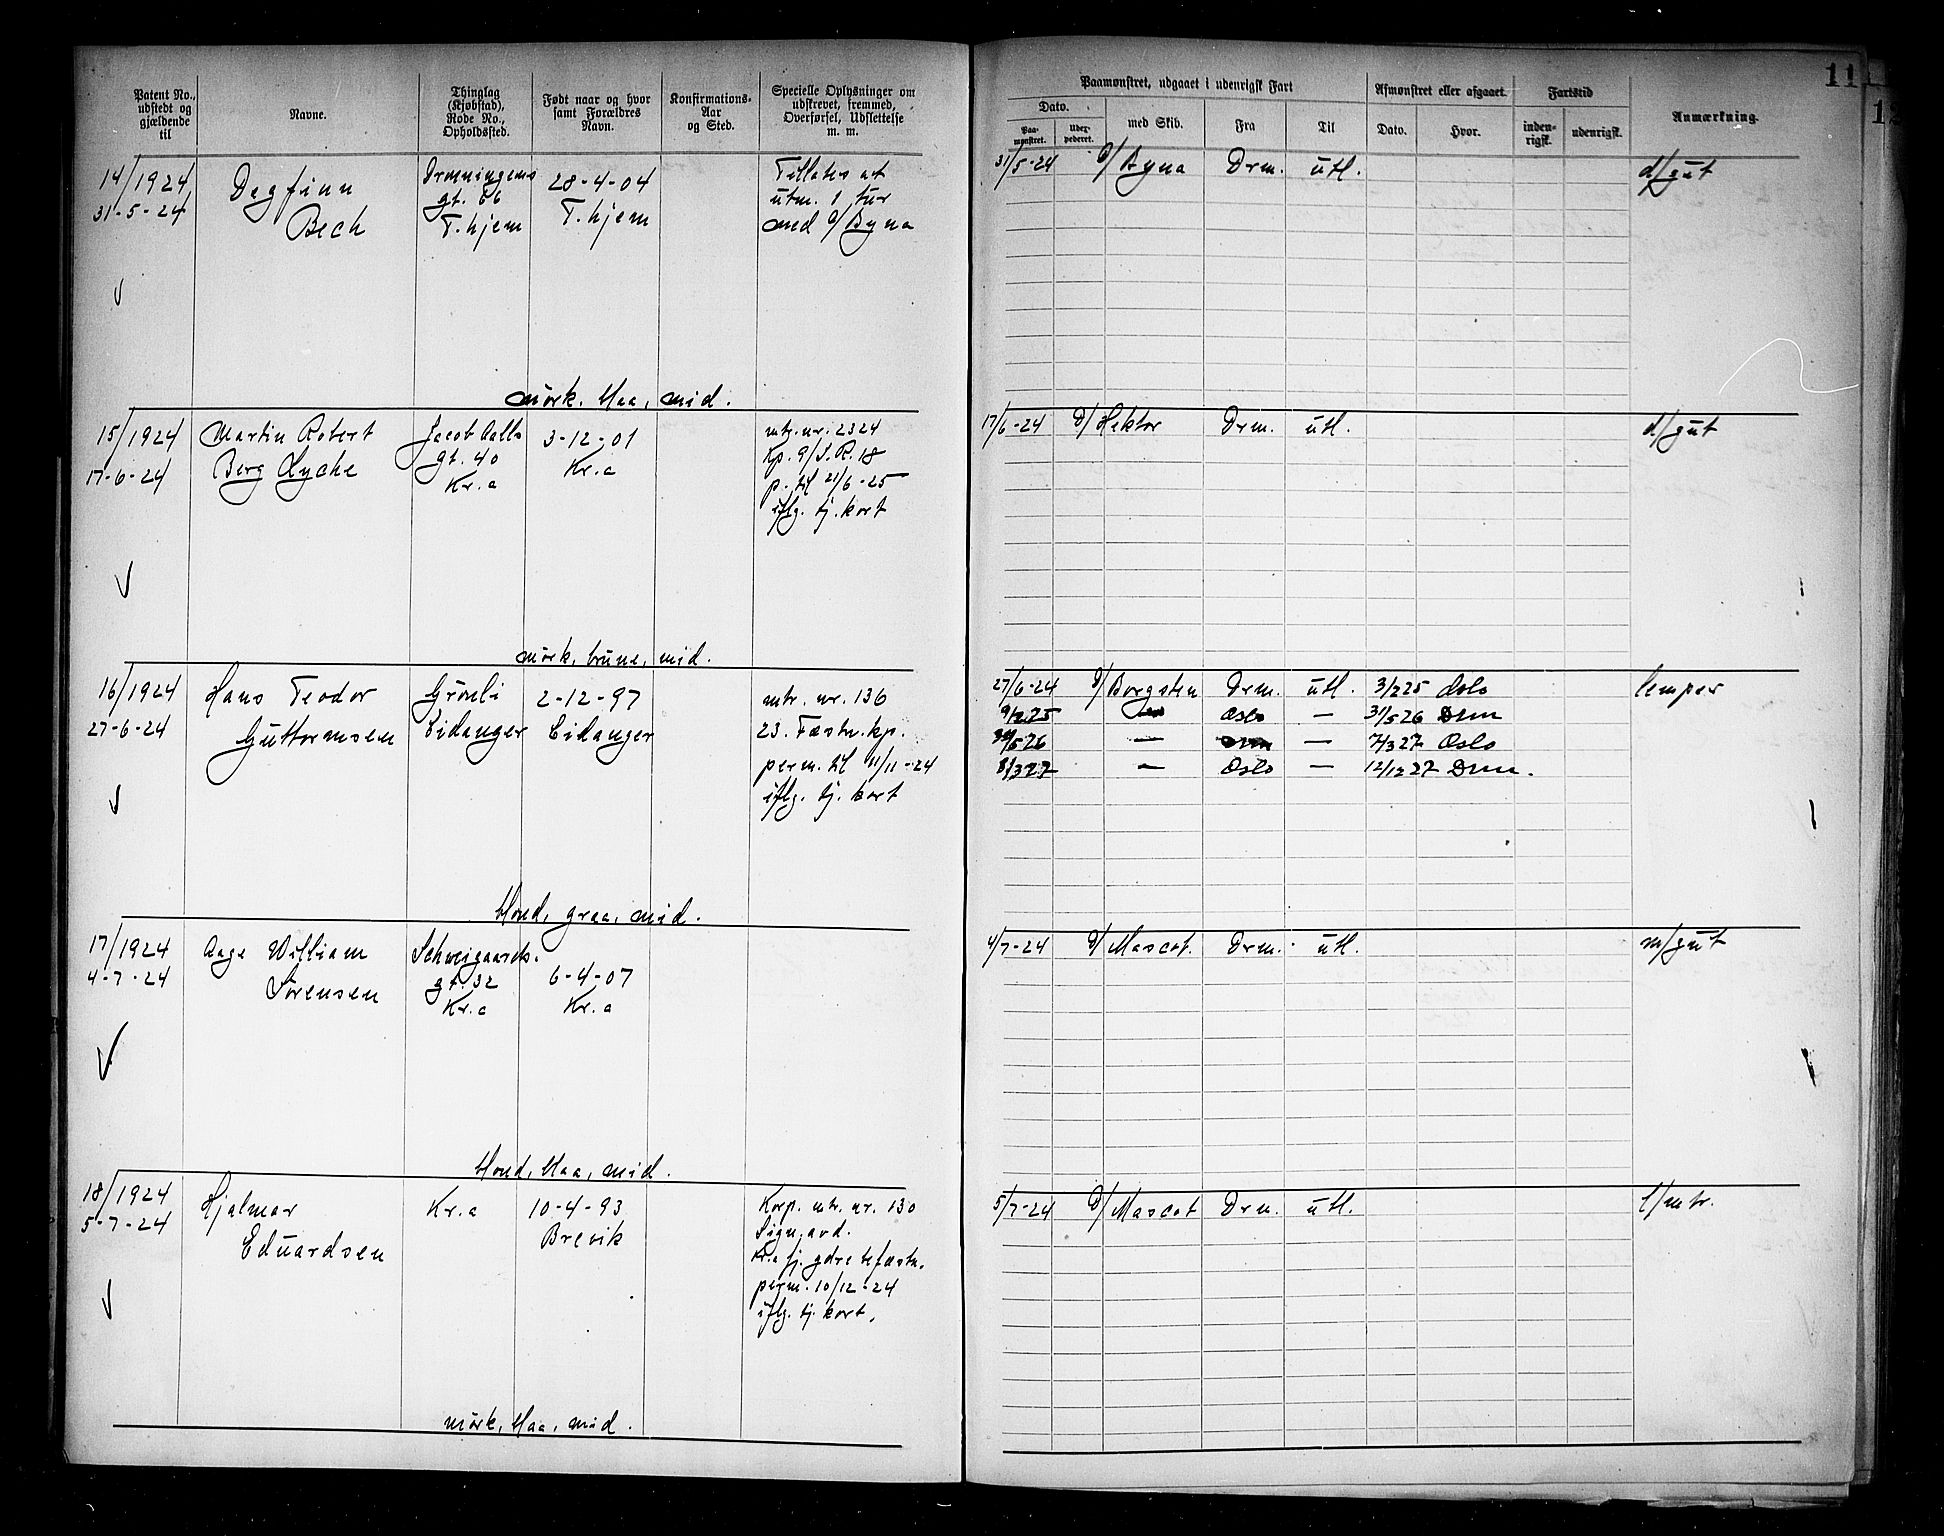 Patent No., udstedt og gjældende til
Navne.
Thinglag (Kjøbstad), Rode No., Opholdssted.
Født naar og hvor samt Forældres Navn.
Konfirmations-Aar og Sted.
Specielle Oplysninger om udskrevet, fremmed, Overførsel, Udslettelse m. m.
Paamønstret, udgaaet i udenrigsk Fart
Dato.
Paa-mønstret.
med Skib.
Fra
Til
Afmønstret eller afgaaet.
Dato.
Hvor.
Fartstid
inden-rigsk.
udenrigsk.
Anmærkning.
11
14/1924
31-5-24
Dagfinn
Bech
Dronningens
gt. 66
T.hjem
28-4-04
T.hjem
Tillates at
utm. 1 tur
med D/ Byna
mörk. blaa, mid.
31/5-24 D/ Byna Drm. utl. d/gut
15/1924
17-6-24
Martin Robert
Berg Lyche
Jacob Aalls
gt. 40
Kr.a
3-12-01
Kr.a
mtr.nr. 2324
Kp. 9/I.R. 18
p. til 21/6-25
iflg. tj. kort
mörk, brune, mid.
17/6-24 D/ Hektor Drm. utl. d/gut
16/1924
27-6-24
Hans Teodor
Guttormsen
Grönli
Eidanger
2-12-97
Eidanger
mtr. nr. 136
23. Fæstn. kp.
perm. til 11/11-24
iflg. tj. kort
blond, graa, mid.
27/6-24 D/ Borgsten Drm. utl. 3/2 25 Oslo lemper
9/2 25 — Oslo — 31/5 26 Drm
31/5 26 — Drm — 7/3 27 Oslo
8/3 27 — Oslo — 12/12 27 Drm.
17/1924
4-7-24
Aage William
Sörensen
Schweigaards.
gt. 32
Kr.a
6-4-07
Kr.a
blond, blaa, mid.
4/7-24 D/ Mascot. Drm. utl. m/gut
18/1924
5-7-24
Hjalmar
Eduardsen
Kr.a
10-4-93
Brevik
Korp. mtr. nr. 130
Sign. avd.
Kr.a fj. ydre befæstn.
perm. 10/12-24
iflg. tj. kort.
mörk, blaa, mid.
5/7-24 D/ Mascot Drm. utl. l/mtr.